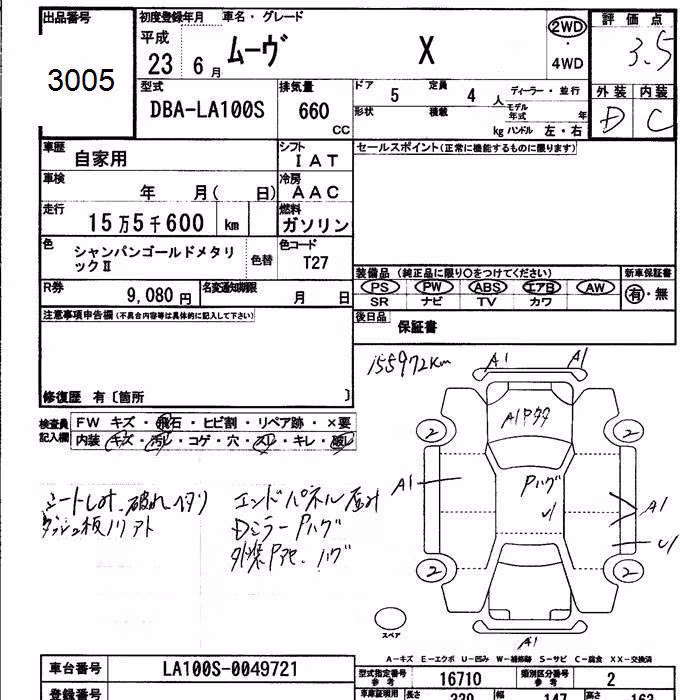 出品番号
3005
初度登録年月 車名・グレード
平成
23 6月
ムーヴ X
2WD
・
4WD
評価点
3.5
外装 内装
D C
型式
DBA-LA100S
排気量
660
CC
ドア 5 定員 4 人
ディーラー・並行
形状 積載 kg
モデル年式 年
ハンドル 左・右
車歴
自家用
シフト
IAT
車検
年 月( 日)
冷房
AAC
走行
15万5千600 km
燃料
ガソリン
色
シャンパンゴールドメタリ
ックⅡ
色替
色コード
T27
R券
9,080円
名変通知期限
月 日
セールスポイント(正常に機能するものに限ります)
装備品 (純正品に限り○をつけてください)
新車保証書
PS PW ABS エアB AW
SR ナビ TV カワ
有・無
後日品
保証書
注意事項申告欄(不具合内容等は具体的に記入して下さい)
修復歴 有〔箇所 〕
検査員
記入欄
FW キズ・飛石・ヒビ割・リペア跡・×要
内装 キズ・汚レ・コゲ・穴・スレ・キレ・破レ
155972km
A1 A1
A1
2 2
A1
Pハゲ
U
A1
U
2 2
A1
シートしみ、破れ、ヘタリ
ダッシュ板ノリアト
エンドパネル歪み
Dミラー Pハゲ
スペア
A-キズ E-エクボ U-凹み W-補修跡 S-サビ C-腐食 XX-交換済
車台番号
LA100S-0049721
登録番号
型式指定番号
参考
16710
類別区分番号
参考
2
車庫証明用
長さ
339
幅
147
高さ
163